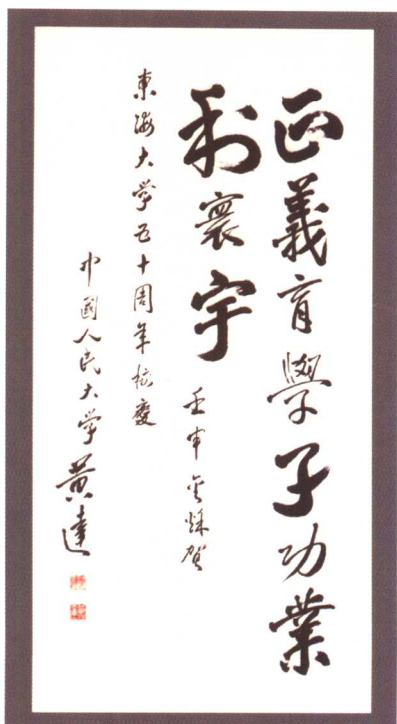 正義育學子功業
利寰宇
壬申金秋賀
東海大学五十周年校慶
中國人民大学黄達